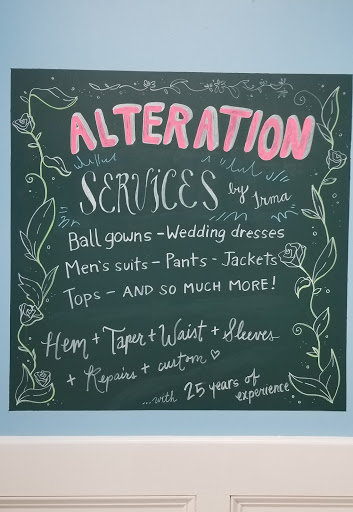 ALTERATION
SERVICES by Irma
Ball gowns - Wedding dresses
Men's suits - Pants - Jackets
Tops - AND SO MUCH MORE!
Hem + Taper + Waist + Sleeves
+ Repairs + custom ♡
...with 25 years of
experience